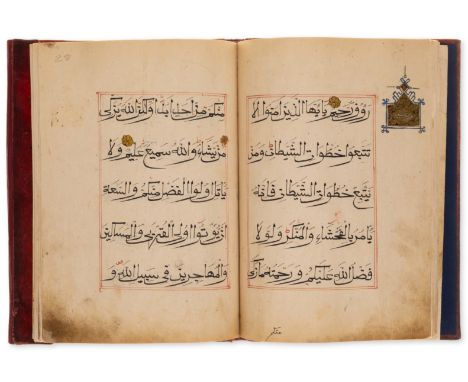 رؤوف رحيم يا يها الذين امنوا لا
تتبعوا خطوات الشيطان ومن
يتبع خطوات الشيطان فانه
يامر بالفحشاء والمنكر ولولا
فضل الله عليكم ورحمته ما زكى
منكم
20
منكم من احد ابدا ولكن الله يزكي
من يشاء والله سميع عليم ولا
ياتل اولوا الفضل منكم والسعة
ان يؤتوا اولي القربى والمساكين
والمهاجرين في سبيل الله و